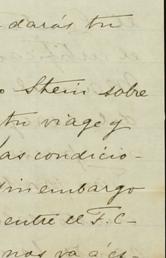 darás tu
Stein sobre
tu viage y
las condicio-
sin embargo
entre el F. C-
nos va á es-